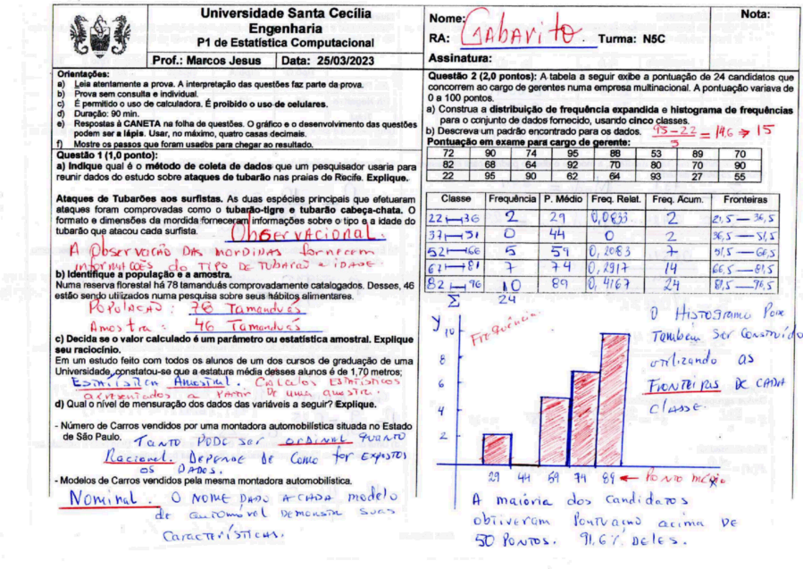 Universidade Santa Cecília
Engenharia
P1 de Estatística Computacional
Prof.: Marcos Jesus Data: 25/03/2023
Nome: Gabarito.
Nota:
RA: Turma: N5C
Assinatura:
Orientações:
a) Leia atentamente a prova. A interpretação das questões faz parte da prova.
b) Prova sem consulta e individual.
c) É permitido o uso de calculadora. É proibido o uso de celulares.
d) Duração: 90 min.
e) Respostas à CANETA na folha de questões. O gráfico e o desenvolvimento das questões
podem ser a lápis. Usar, no máximo, quatro casas decimais.
f) Mostre os passos que foram usados para chegar ao resultado.
Questão 1 (1,0 ponto):
a) Indique qual é o método de coleta de dados que um pesquisador usaria para
reunir dados do estudo sobre ataques de tubarão nas praias de Recife. Explique.
Ataques de Tubarões aos surfistas. As duas espécies principais que efetuaram
ataques foram comprovadas como o tubarão-tigre e tubarão cabeça-chata. O
formato e dimensões da mordida forneceram informações sobre o tipo e a idade do
tubarão que atacou cada surfista.
Observacional.
A Observação das mordidas fornecem
informações do TIPO DE TUBARÃO e IDADE.
b) Identifique a população e a amostra.
Numa reserva florestal há 78 tamanduás comprovadamente catalogados. Desses, 46
estão sendo utilizados numa pesquisa sobre seus hábitos alimentares.
População: 78 Tamanduás
Amostra: 46 Tamanduás
c) Decida se o valor calculado é um parâmetro ou estatística amostral. Explique
seu raciocínio.
Em um estudo feito com todos os alunos de um dos cursos de graduação de uma
Universidade, constatou-se que a estatura média desses alunos é de 1,70 metros;
Estatística Amostral. Calculos Estatísticos
apresentados a partir de uma amostra.
d) Qual o nível de mensuração dos dados das variáveis a seguir? Explique.
- Número de Carros vendidos por uma montadora automobilística situada no Estado
de São Paulo.
TANTO PODE SER ordinal QUANTO
Racional. DEPENDE DE COMO for EXPOSTOS
OS DADOS.
- Modelos de Carros vendidos pela mesma montadora automobilística.
Nominal. O NOME DADO A CADA modelo
de automóvel DEMONSTR SUAS
Características.
Questão 2 (2,0 pontos): A tabela a seguir exibe a pontuação de 24 candidatos que
concorrem ao cargo de gerentes numa empresa multinacional. A pontuação variava de
0 a 100 pontos.
a) Construa a distribuição de frequência expandida e histograma de frequências
para o conjunto de dados fornecido, usando cinco classes.
b) Descreva um padrão encontrado para os dados. 95-22 = 14,6 ⇒ 15
5
Pontuação em exame para cargo de gerente:
72 90 74 95 88 53 89 70
82 68 64 92 70 80 70 90
22 95 90 62 64 93 27 55
Classe Frequência P. Médio Freq. Relat. Freq. Acum. Fronteiras
22⊢36 2 29 0,0833 2 21,5 – 36,5
37⊢51 0 44 0 2 36,5 – 51,5
52⊢66 5 59 0,2083 7 51,5 – 66,5
67⊢81 7 74 0,2917 14 66,5 – 81,5
82⊢96 10 89 0,4167 24 81,5 – 96,5
Σ 24
y
Frequência
10
8
6
4
2
29 44 59 74 89 ← Ponto médio
x
O HISTOGRAMA Pode
Também SER CONSTRUÍDO
utilizando as
FRONTEIRAS DE CADA
classe.
A maioria dos candidatos
obtiveram Pontuação acima DE
50 PONTOS. 91,6% DELES.